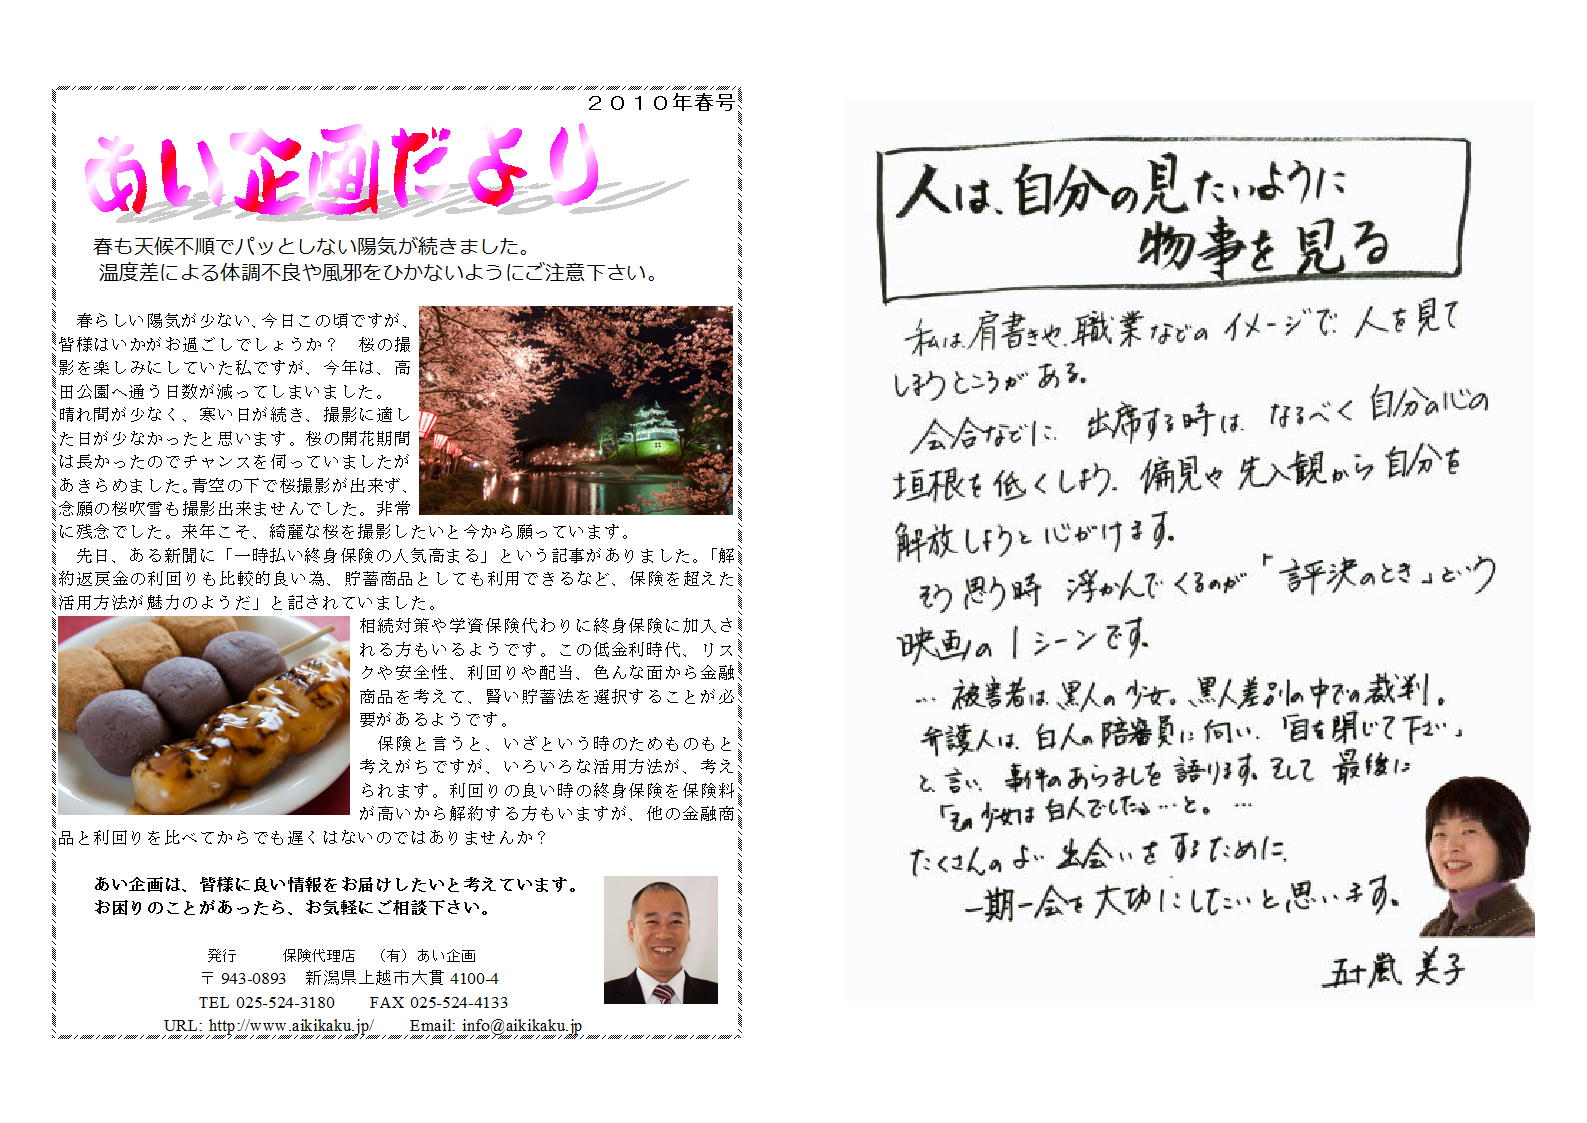 ２０１０年春号
あい企画だより
春も天候不順でパッとしない陽気が続きました。
温度差による体調不良や風邪をひかないようにご注意下さい。
春らしい陽気が少ない、今日この頃ですが、
皆様はいかがお過ごしでしょうか？　桜の撮
影を楽しみにしていた私ですが、今年は、高
田公園へ通う日数が減ってしまいました。
晴れ間が少なく、寒い日が続き、撮影に適し
た日が少なかったと思います。桜の開花期間
は長かったのでチャンスを伺っていましたが
あきらめました。青空の下で桜撮影が出来ず、
念願の桜吹雪も撮影出来ませんでした。非常
に残念でした。来年こそ、綺麗な桜を撮影したいと今から願っています。
先日、ある新聞に「一時払い終身保険の人気高まる」という記事がありました。「解
約返戻金の利回りも比較的良い為、貯蓄商品としても利用できるなど、保険を超えた
活用方法が魅力のようだ」と記されていました。
相続対策や学資保険代わりに終身保険に加入さ
れる方もいるようです。この低金利時代、リス
クや安全性、利回りや配当、色んな面から金融
商品を考えて、賢い貯蓄法を選択することが必
要があるようです。
保険と言うと、いざという時のためものもと
考えがちですが、いろいろな活用方法が、考え
られます。利回りの良い時の終身保険を保険料
が高いから解約する方もいますが、他の金融商
品と利回りを比べてからでも遅くはないのではありませんか？
あい企画は、皆様に良い情報をお届けしたいと考えています。
お困りのことがあったら、お気軽にご相談下さい。
発行　　　保険代理店　（有）あい企画
〒943-0893　新潟県上越市大貫 4100-4
TEL 025-524-3180　　FAX 025-524-4133
URL: http://www.aikikaku.jp/　　Email: info@aikikaku.jp
人は、自分の見たいように
物事を見る
私は、肩書きや、職業などのイメージで、人を見て
しまうところがある。
会合などに、出席する時は、なるべく自分の心の
垣根を低くしよう、偏見や先入観から自分を
解放しようと心がけます。
そう思う時 浮かんでくるのが「評決のとき」という
映画の1シーンです。
… 被害者は、黒人の少女。黒人差別の中での裁判。
弁護人は、白人の陪審員に向い、「目を閉じて下さい」
と、言い、事件のあらましを語ります。そして 最後に
「その少女は白人でした」…と。…
たくさんのよい出会いをするために、
一期一会を大切にしたいと思います。
五十嵐 美子